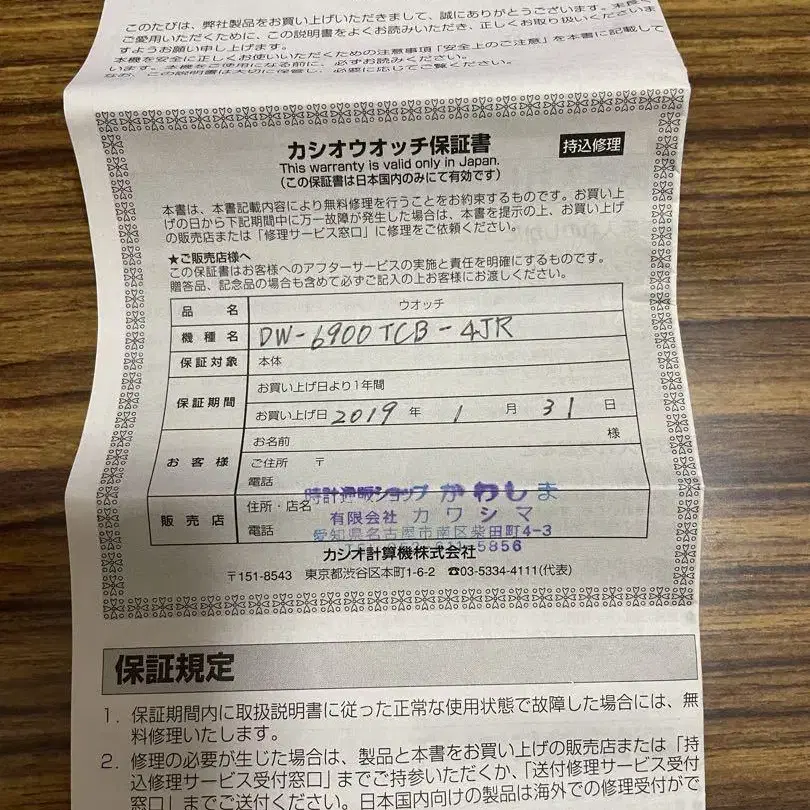 このたびは、弊社製品をお買い上げいただきまして、誠にありがとうございます。
ご愛用いただくために、この説明書をよくお読みいただき、正しくお取り扱いくださいま
すようお願い申し上げます。
本機を安全に正しくお使いいただくための注意事項「安全上のご注意」を本書に記載して
います。本機をご使用になる前に、必ずお読みください。
なお、この説明書は大切に保管し、必要に応じてご覧ください。
カシオウオッチ保証書
持込修理
This warranty is valid only in Japan.
(この保証書は日本国内のみにて有効です)
本書は、本書記載内容により無料修理を行うことをお約束するものです。お買い上
げの日から下記期間中に万一故障が発生した場合は、本書を提示の上、お買い上げ
の販売店または「修理サービス窓口」に修理をご依頼ください。
★ご販売店様へ
この保証書はお客様へのアフターサービスの実施と責任を明確にするものです。
贈答品、記念品の場合も含めて必ずご記入の上お客様にお渡しください。
品名 ウオッチ
機種名 DW-6900TCB-4JR
保証対象 本体
保証期間 お買い上げ日より1年間
お買い上げ日 2019 年 1 月 31 日
お客様 お名前 様
ご住所 〒
電話
販売店 住所・店名 時計通販ショップ かわしま
有限会社 カワシマ
電話 愛知県名古屋市南区柴田町4-3
5856
カシオ計算機株式会社
〒151-8543 東京都渋谷区本町1-6-2 ☎03-5334-4111(代表)
保証規定
1. 保証期間内に取扱説明書に従った正常な使用状態で故障した場合には、無
料修理いたします。
2. 修理の必要が生じた場合は、製品と本書をお買い上げの販売店または「持
込修理サービス受付窓口」までご持参いただくか、「送付修理サービス受付
窓口」までご送付ください。日本国内向けの製品は海外での修理受付がで